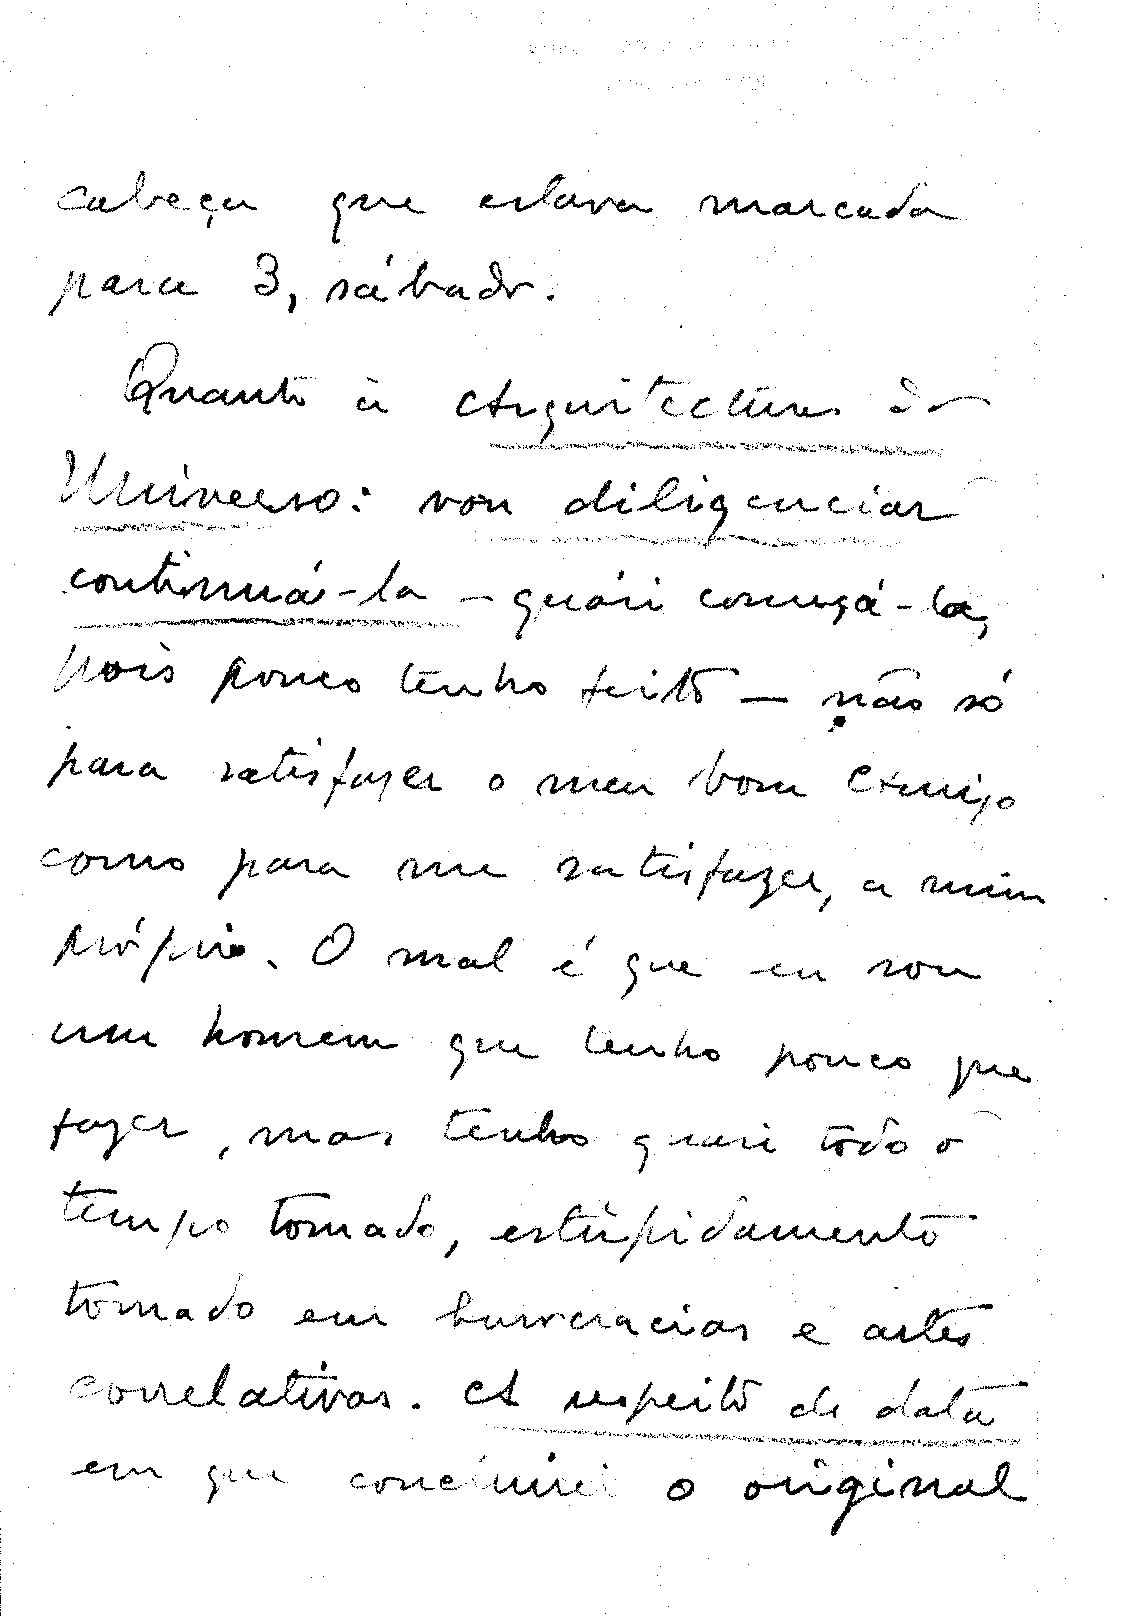 cabeça que estava marcada
para 3, sábado.
Quanto à Arquitectura do
Universo: vou diligenciar
continuá-la – quási começá-la,
pois pouco tenho feito – não só
para satisfazer o meu bom Amigo
como para me satisfazer, a mim
próprio. O mal é que eu sou
um homem que tenho pouco que
fazer, mas tenho quasi todo o
tempo tomado, estùpidamente
tomado em burocracias e artes
correlativas. A respeito de data
em que concluirei o original